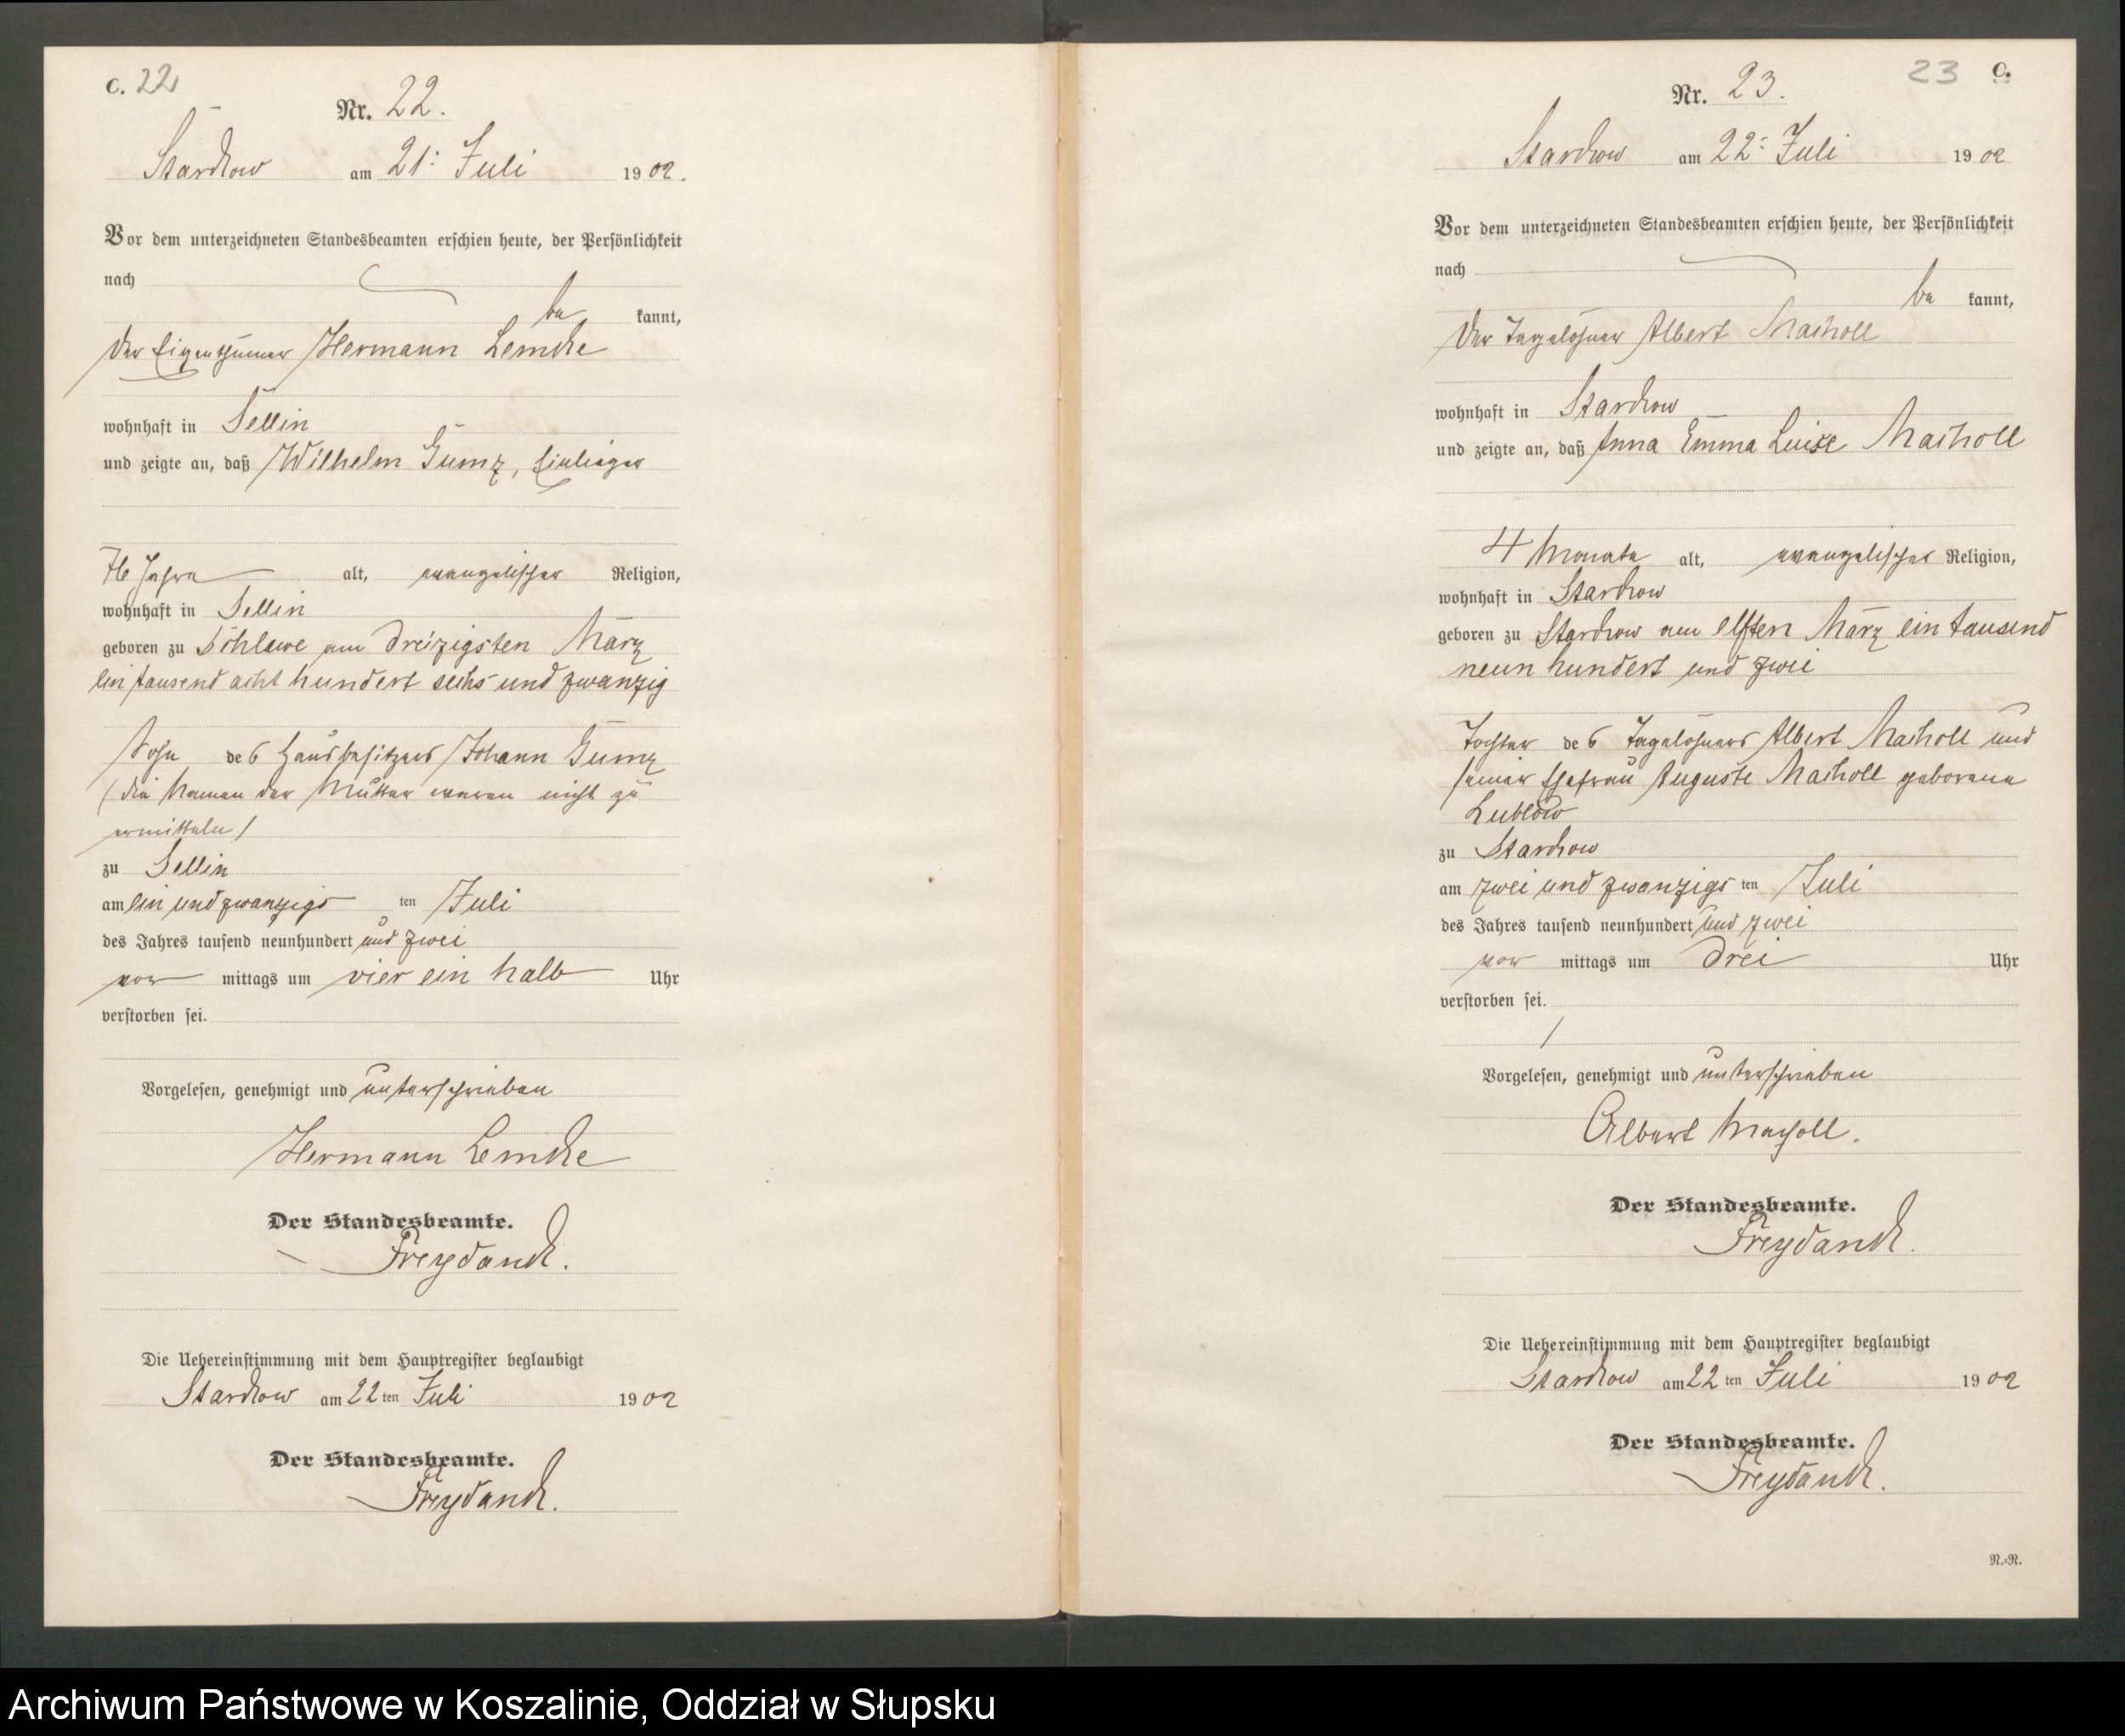 C. 22
Nr. 22.
Starkow am 21. Juli 1902.
Vor dem unterzeichneten Standesbeamten erschien heute, der Persönlichkeit
nach
be kannt,
der Eigenthümer Hermann Lemcke
wohnhaft in Sellin
und zeigte an, daß Wilhelm Gumz, Einlieger
76 Jahre alt, evangelischer Religion,
wohnhaft in Sellin
geboren zu Schlawe am dreizigsten März
ein tausend acht hundert sechs und zwanzig
Sohn des Hausbesitzers Johann Gumz
(die Namen der Mutter waren nicht zu
ermitteln)
zu Sellin
am ein und zwanzigs ten Juli
des Jahres tausend neunhundert und zwei
vor mittags um vier ein halb Uhr
verstorben sei.
Vorgelesen, genehmigt und unterschrieben
Hermann Lemcke
Der Standesbeamte.
Freydanck.
Die Uebereinstimmung mit dem Hauptregister beglaubigt
Starkow am 22 ten Juli 1902
Der Standesbeamte.
Freydanck.
23 C.
Nr. 23.
Starkow am 22. Juli 1902
Vor dem unterzeichneten Standesbeamten erschien heute, der Persönlichkeit
nach
be kannt,
der Tagelöhner Albert Macholl
wohnhaft in Starkow
und zeigte an, daß Anna Emma Luise Macholl
4 Monate alt, evangelischer Religion,
wohnhaft in Starkow
geboren zu Starkow am elften März ein tausend
neun hundert und zwei
Tochter des Tagelöhners Albert Macholl und
seiner Ehefrau Auguste Macholl geborene
Lublow
zu Starkow
am zwei und zwanzigs ten Juli
des Jahres tausend neunhundert und zwei
vor mittags um drei Uhr
verstorben sei.
Vorgelesen, genehmigt und unterschrieben
Albert Macholl.
Der Standesbeamte.
Freydanck.
Die Uebereinstimmung mit dem Hauptregister beglaubigt
Starkow am 22 ten Juli 1902
Der Standesbeamte.
Freydanck.
N.-N.
Archiwum Państwowe w Koszalinie, Oddział w Słupsku